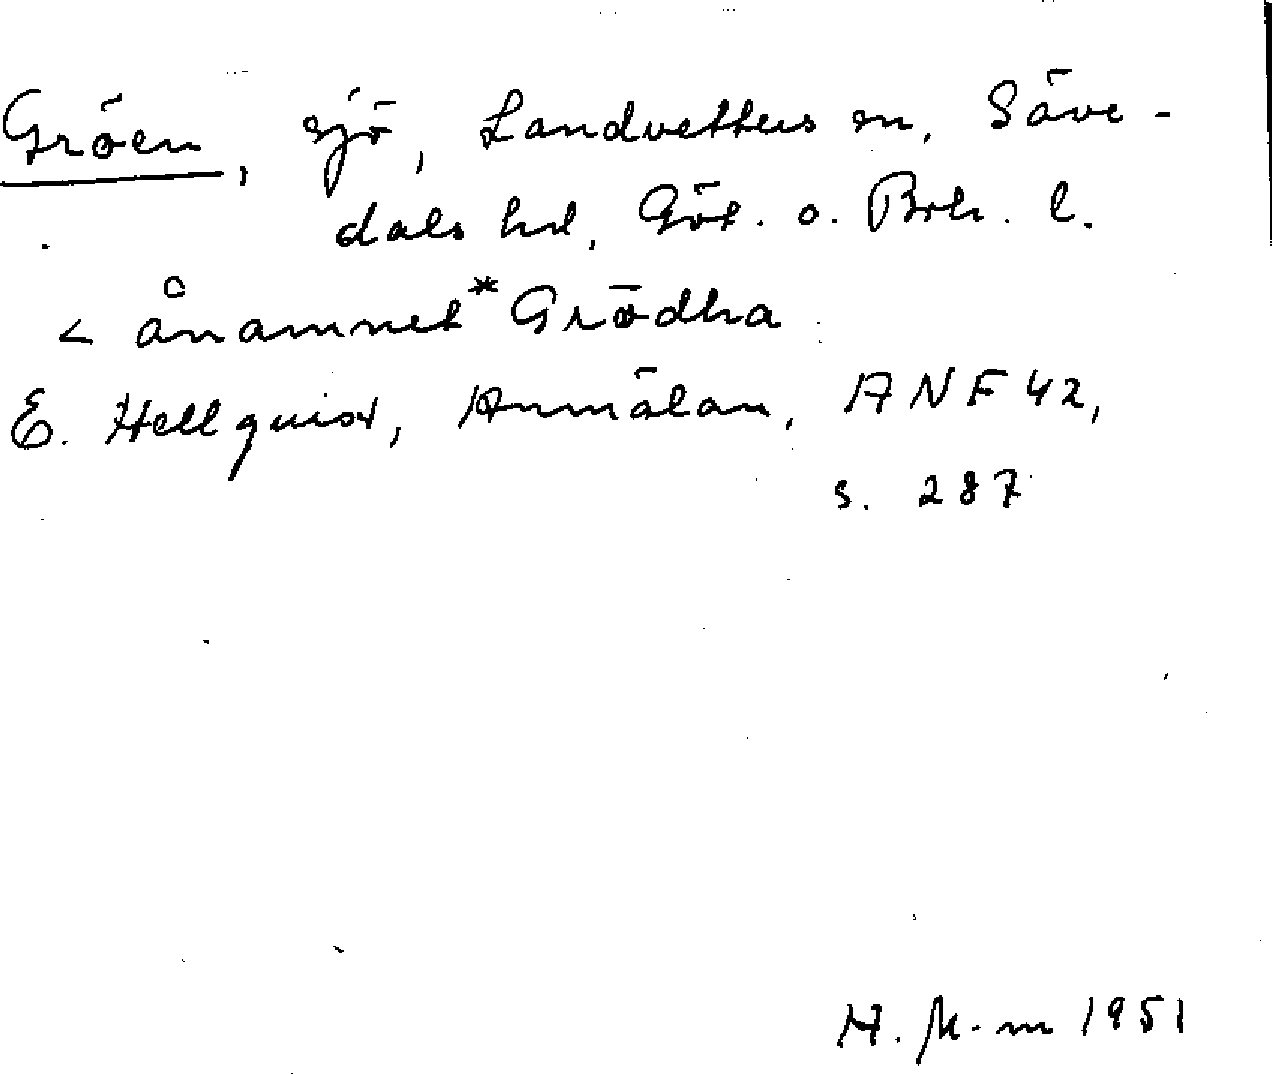 Gröen, sjö, Landvetters sn, Säve-
dals hd, Göt. o. Boh. l.
< ånamnet *Grödha
E. Hellquist, Anmälan, ANF 42,
s. 287
H. M-m 1951